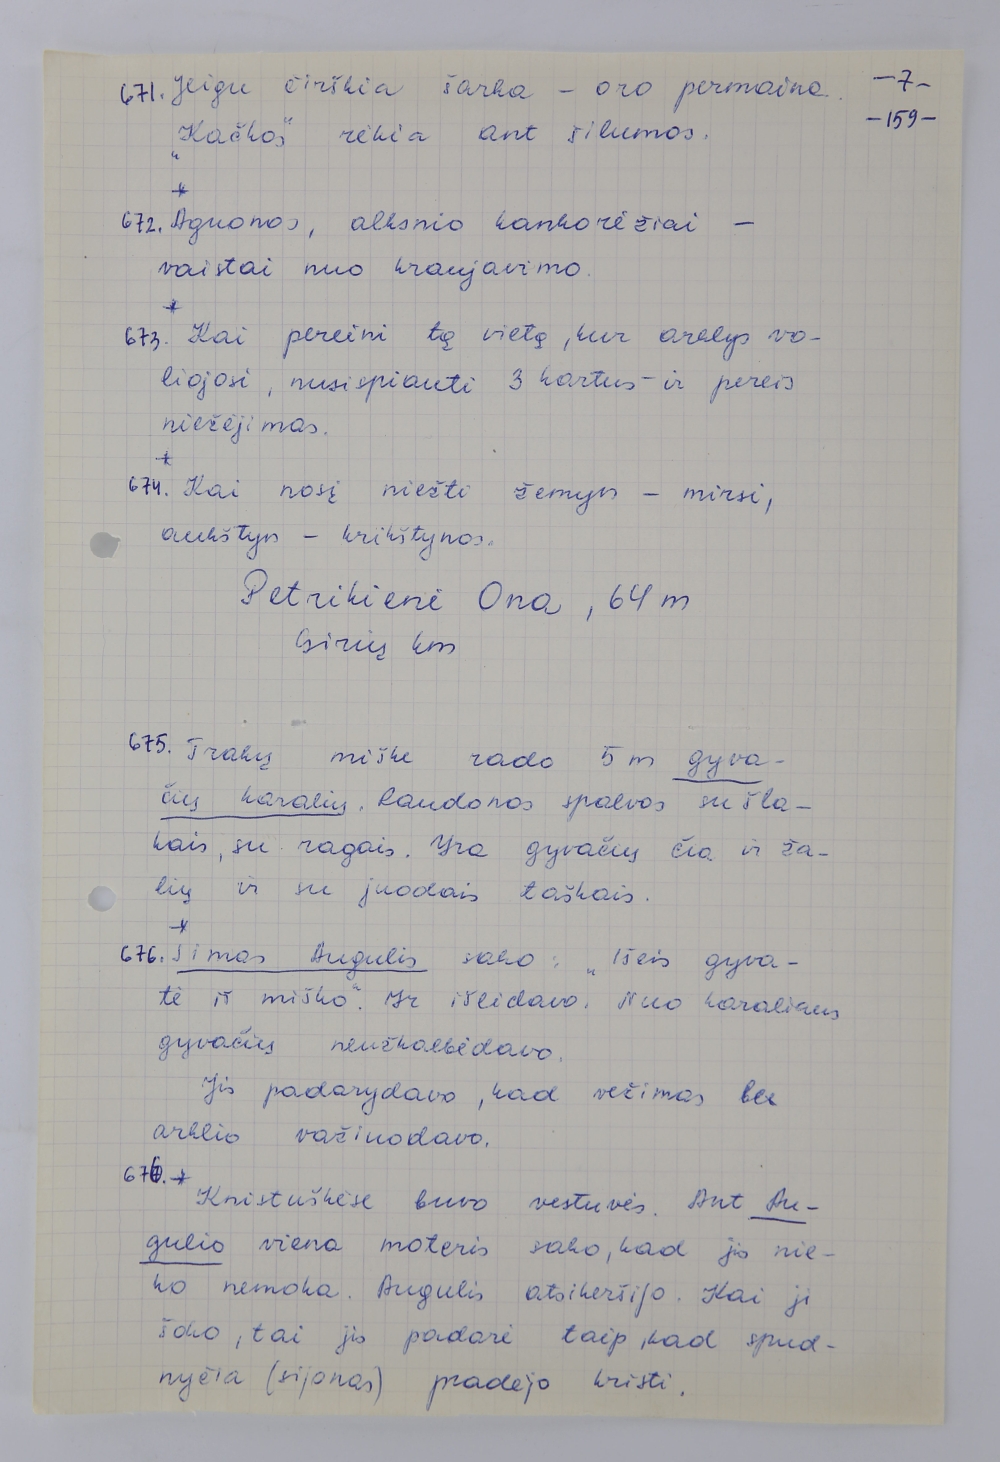 -7-
-159-
671. Jeigu čirškia šarka – oro permaina.
"Kačkos" rėkia ant šilumos.
*
672. Aguonos, alksnio kankorėžiai –
vaistai nuo kraujavimo.
*
673. Kai pereini tą vietą, kur arklys vo-
liojosi, nusispiauti 3 kartus – ir pereis
niežėjimas.
*
674. Kai nosį niežti žemyn – mirsi,
aukštyn – krikštynos.
Petrikienė Ona, 64 m
Girių km
675. Trakų miške rado 5 m gyva-
čių karalių. Raudonos spalvos su šla-
kais, su ragais. Yra gyvačių čia ir ža-
lių ir su juodais taškais.
*
676. Simas Augulis sako: „Išeis gyva-
tė iš miško". Ir išeidavo. Nuo karaliaus
gyvačių neužkalbėdavo.
Jis padarydavo, kad vežimas be
arklio važinodavo.
676. *
Knistuškėse buvo vestuvės. Ant Au-
gulio viena moteris sako, kad jis nie-
ko nemoka. Augulis atsikeršijo. Kai ji
šoko, tai jis padarė taip, kad spud-
nyčia (sijonas) pradėjo kristi.